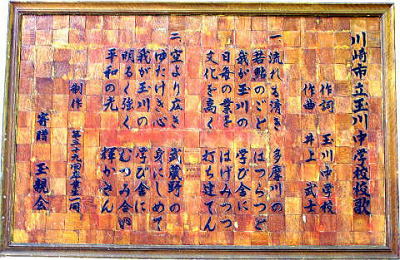 川崎市立玉川中学校校歌
作詞 玉川中学校
作曲 井上武士
一 流れも清き 多摩川の
若鮎のごと はつらつと
我が玉川の 学び舎に
日毎の業を はげみつつ
文化を高く 打ち建てん
二 空より広き 武蔵野の
ゆたけき心 身にしめて
我が玉川の 学び舎に
明るく強く むつみ合い
平和の光 輝かさん
制作 第三十九回卒業生一同
寄贈 玉親会